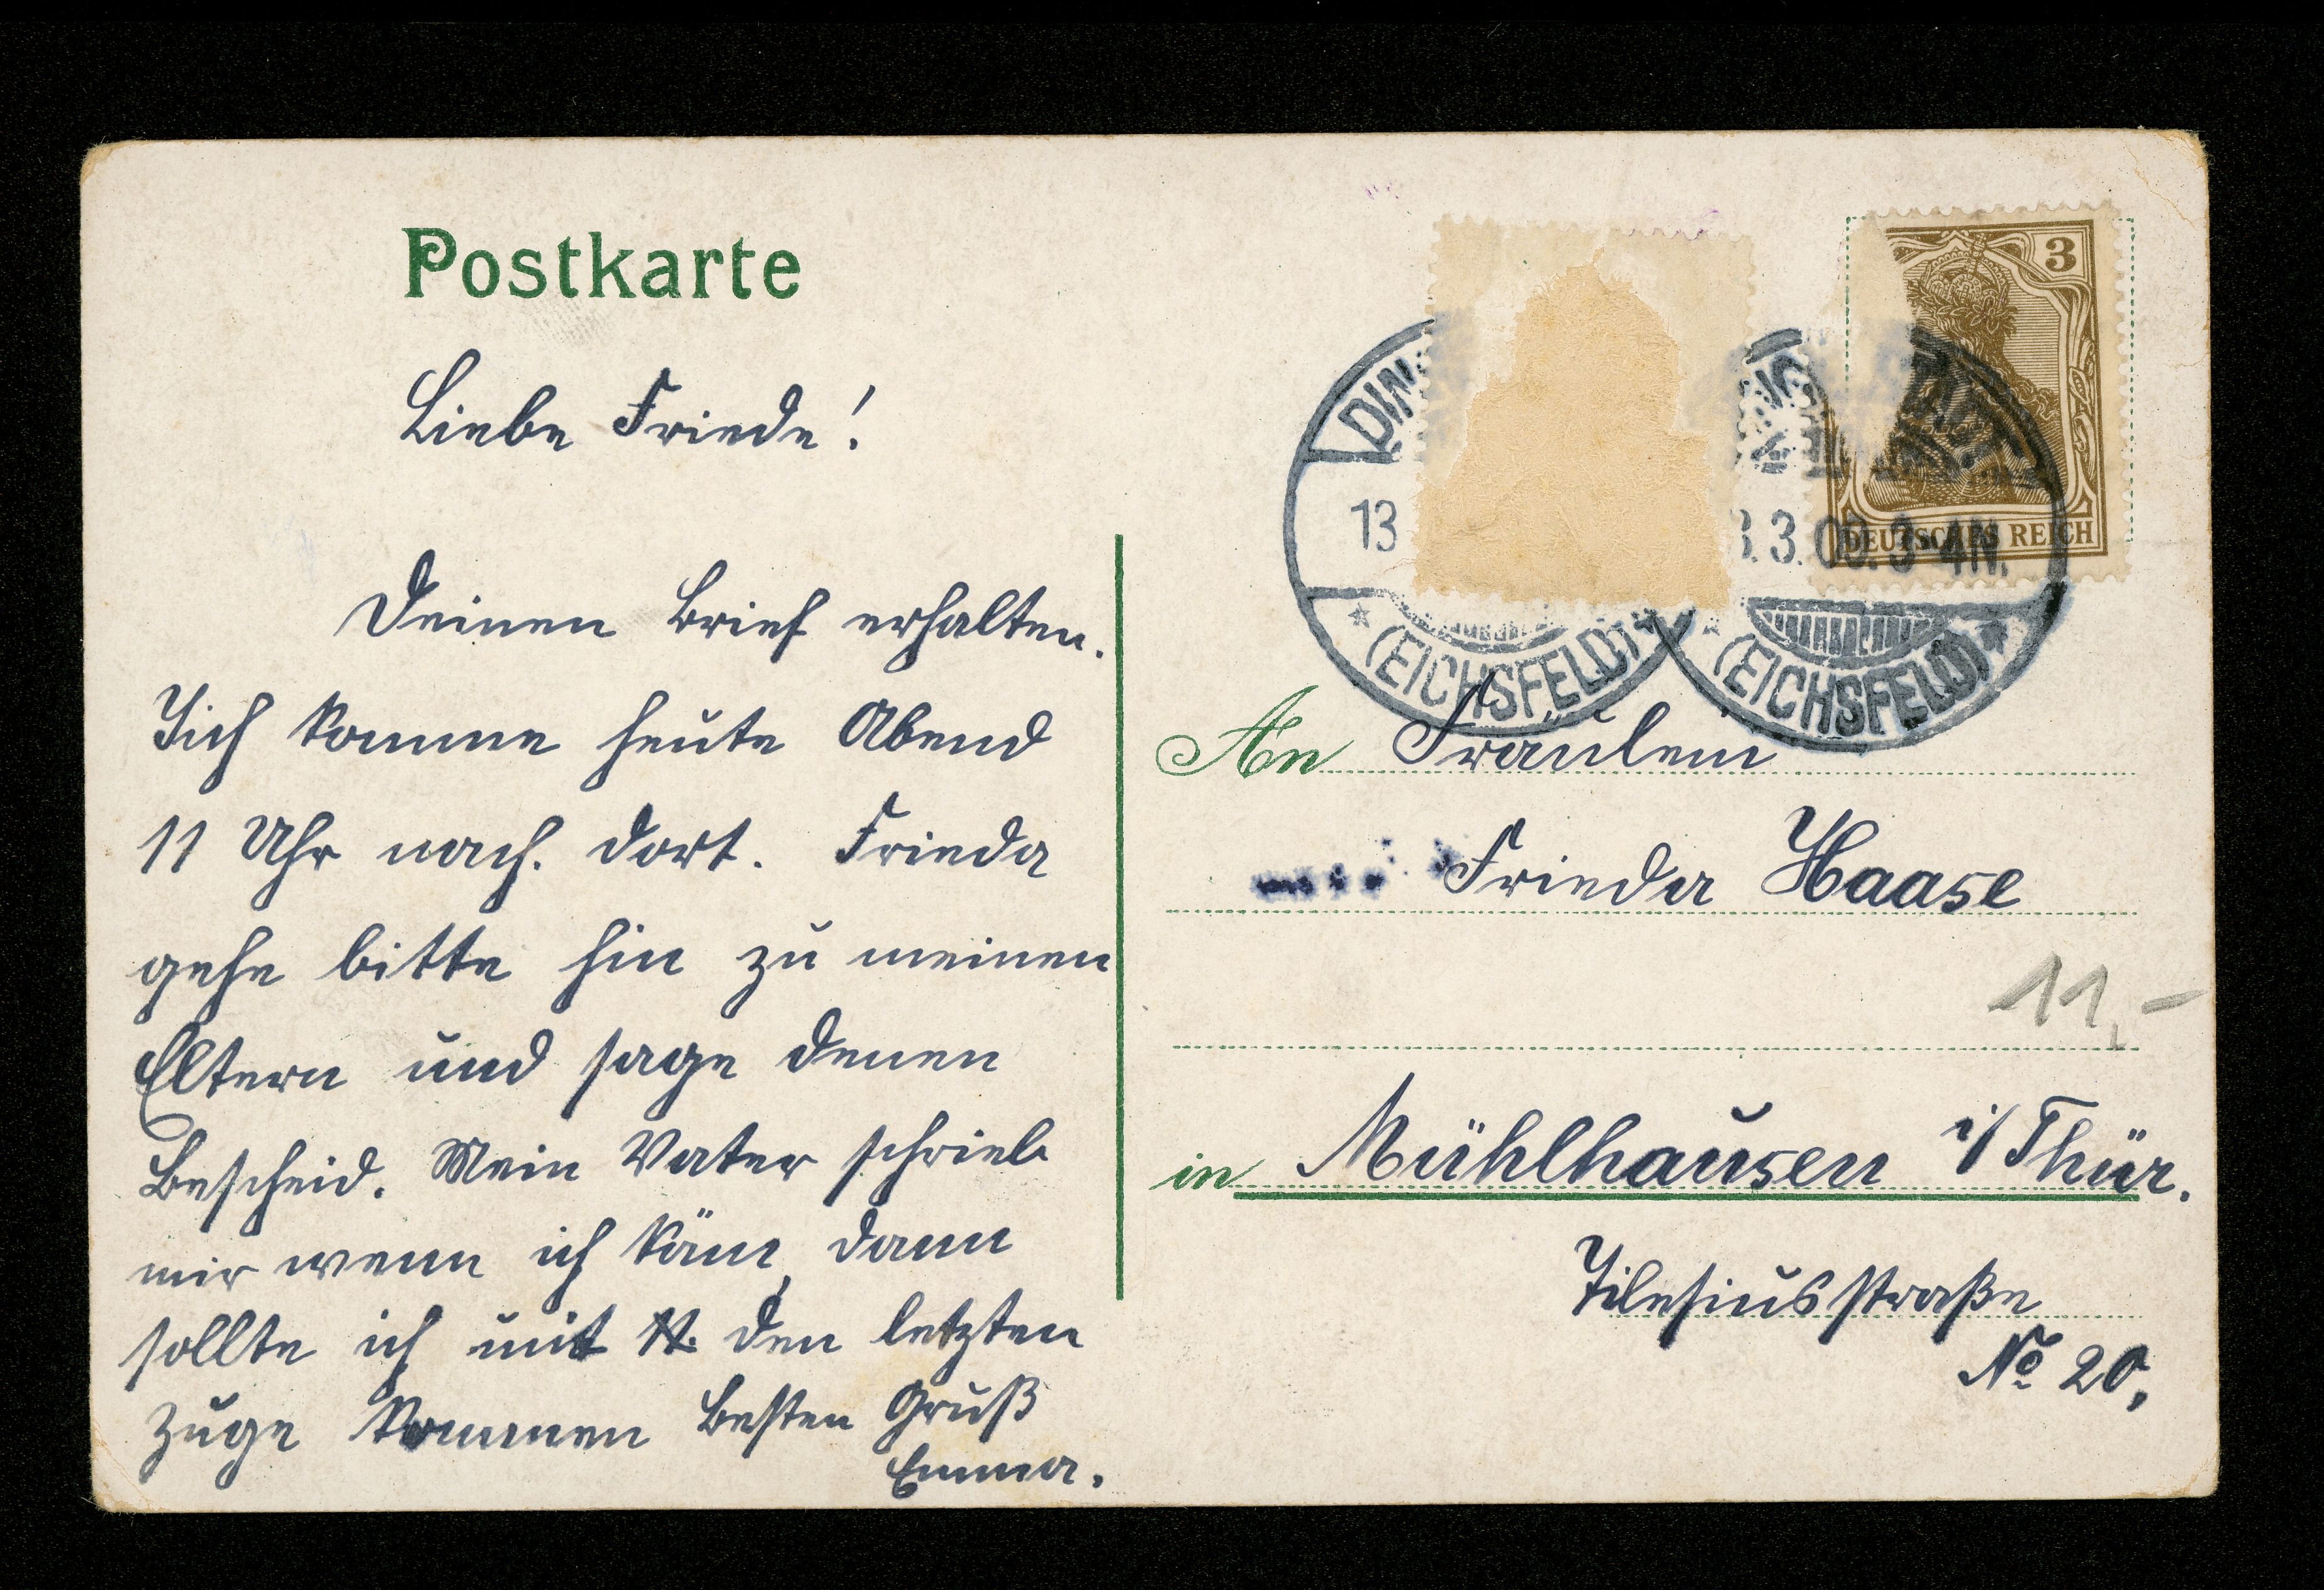 Postkarte
Liebe Friede!
Deinen Brief erhalten.
Ich komme heute Abend
11 Uhr nach. dort. Frieda
gehe bitte hin zu meinen
Eltern und sage denen
Bescheid. Mein Vater schrieb
mir wenn ich käm, dann
sollte ich mit den letzten
Zuge kommen Besten Gruß
Emma.
3
DEUTSCHES REICH
DIN
13
(EICHSFELD)
3. 3-4N.
(EICHSFELD)
An Fräulein
Frieda Haase
11,-
in Mühlhausen i/Thür.
Tilesiusstraße
No 20,